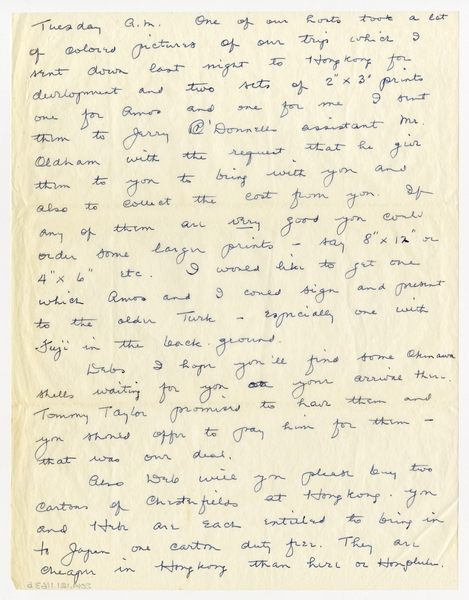 Tuesday A.M. One of our hosts took a lot
of colored pictures of our trip which I
sent down last night to Hongkong for
development and two sets of 2" x 3" prints
one for Amos and one for me. I sent
them to Jerry O'Donnell's assistant Mr.
Oldham with the request that he give
them to you to bring with you and
also to collect the cost from you. If
any of them are very good you could
order some larger prints – say 8" x 12" or
4" x 6" etc. I would like to get one
which Amos and I could sign and present
to the older Turk – especially one with
Fuji in the back-ground.
Debs I hope you'll find some Okinawa
shells waiting for you on your arrival there.
Tommy Taylor promised to have them and
you should offer to pay him for them –
that was our deal.
Also Deb will you please buy two
cartons of Chesterfields at Hongkong. You
and Hebe are each entitled to bring in
to Japan one carton duty free. They are
cheaper in Hongkong than here or Honolulu.